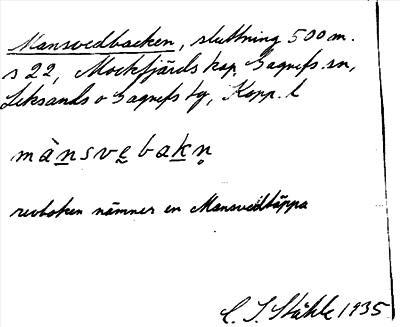 Mansvedbacken, sluttning 500 m.
s 22, Mockfjärds kap. Gagnefs sn,
Leksands o Gagnefs tg, Kopp. l
mànsvebakn̥
revboken nämner en Mansvedtäppa
C. I. Ståhle 1935